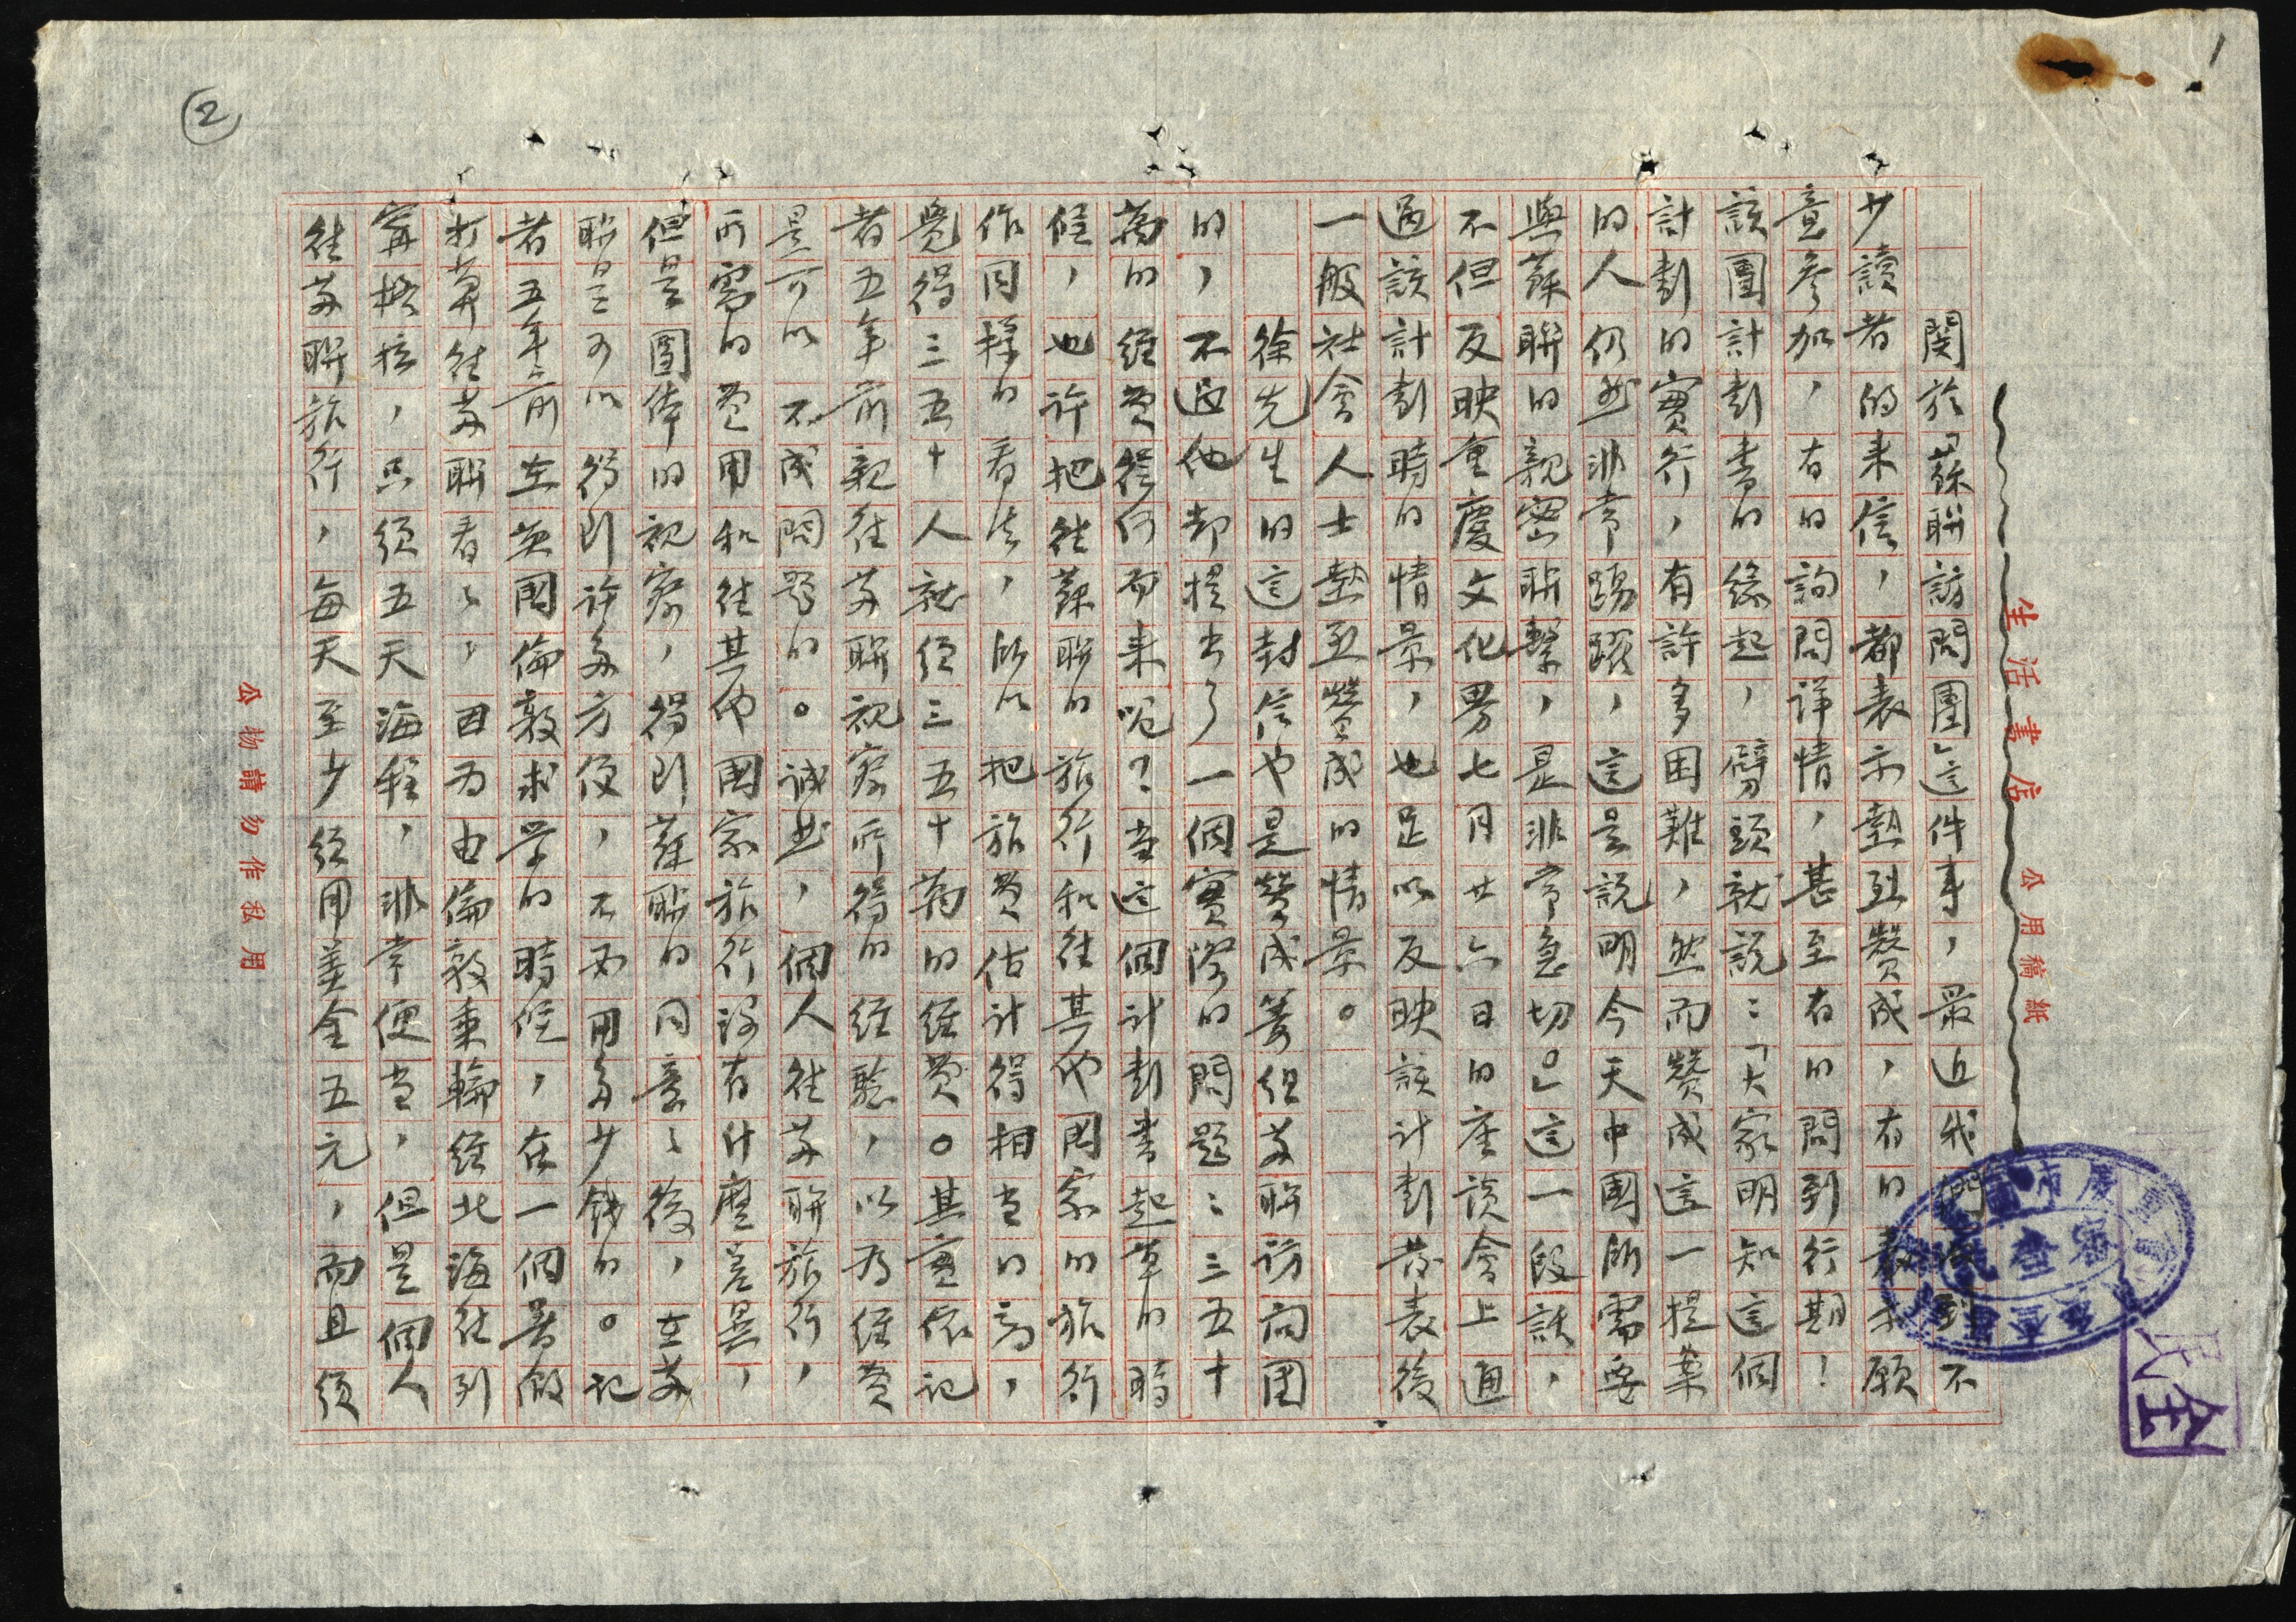 生活書店
公用稿紙
關於「蘇聯訪問團」這件事，最近我們收到不
少讀者的來信，都表示熱烈贊成，有的表示願
意參加，有的詢問詳情，甚至有的問到行期！
該團計劃書的緣起，劈頭就說：「大家明知這個
計劃的實行，有許多困難，然而贊成這一提案
的人仍然非常踴躍，這是說明今天中國所需要
與蘇聯的親密聯繫，是非常急切。」這一段話，
不但反映重慶文化界七月廿六日的座談會上通
過該計劃時的情景，也足以反映該計劃發表後
一般社會人士熱烈贊成的情景。
徐先生的這封信也是贊成籌組蘇聯訪問團
的，不過他却提出了一個實際的問題：三五十
萬的經費從何而來呢？當這個計劃書起草的時
候，也許把往蘇聯的旅行和往其他國家的旅行
作同樣的看法，所以把旅費估計得相當的高，
覺得三五十人就須三五十萬的經費。其實依記
者五年前親往蘇聯視察所得的經驗，以為經費
是可以不成問題的。誠然，個人往蘇聯旅行，
所需的費用和往其他國家旅行沒有什麼差異，
但是團体的視察，得到蘇聯的同意之後，在蘇
聯是可以得到許多方便，不必用多少錢的。記
者五年前在英國倫敦求學的時候，在一個暑假
打算往蘇聯看看，因為由倫敦乘輪經北海往列
寧格拉，只須五天海程，非常便當，但是個人
往蘇聯旅行，每天至少須用美金五元，而且須
公物請勿作私用
2
1